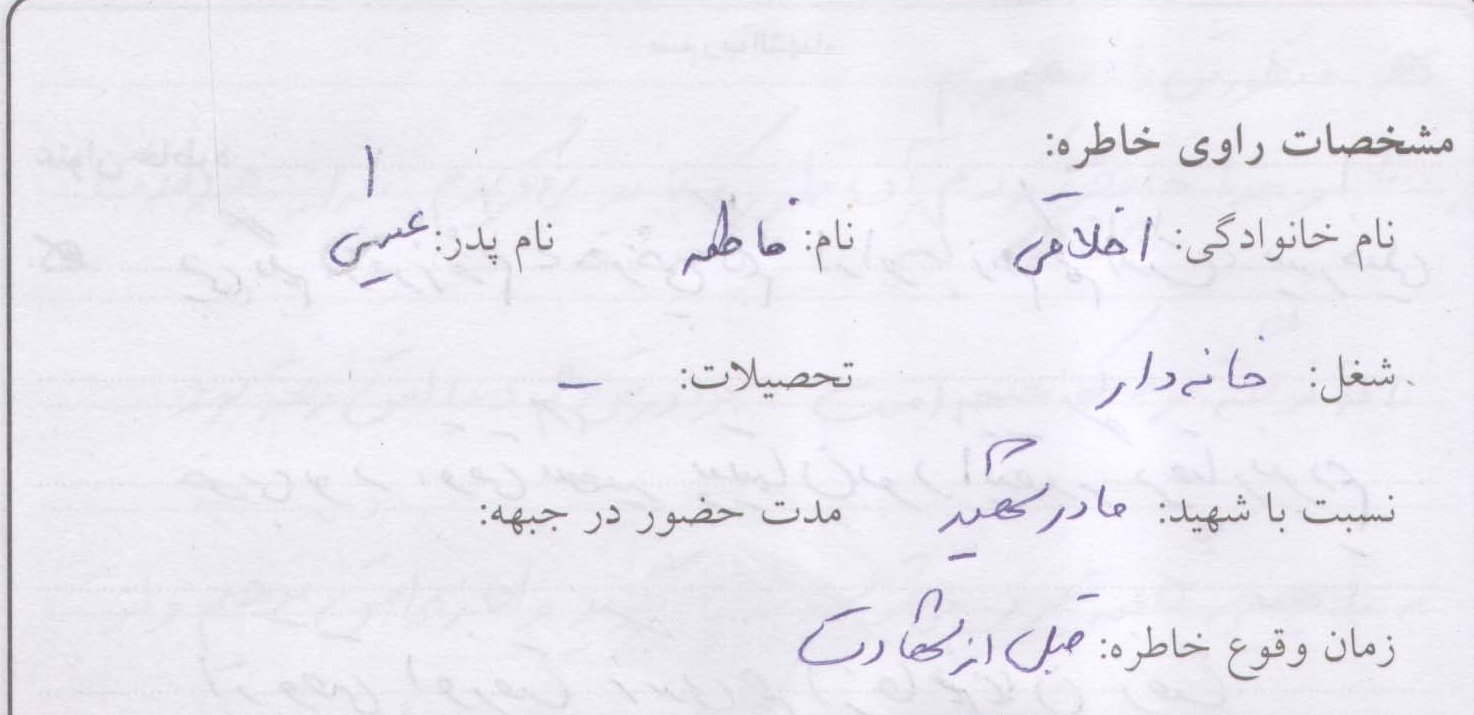 مشخصات راوی خاطره:
نام خانوادگی: اخلاقی نام: فاطمه نام پدر: عیسی
شغل: خانه دار تحصیلات: –
نسبت با شهید: مادر شهید مدت حضور در جبهه:
زمان وقوع خاطره: قبل از شهادت